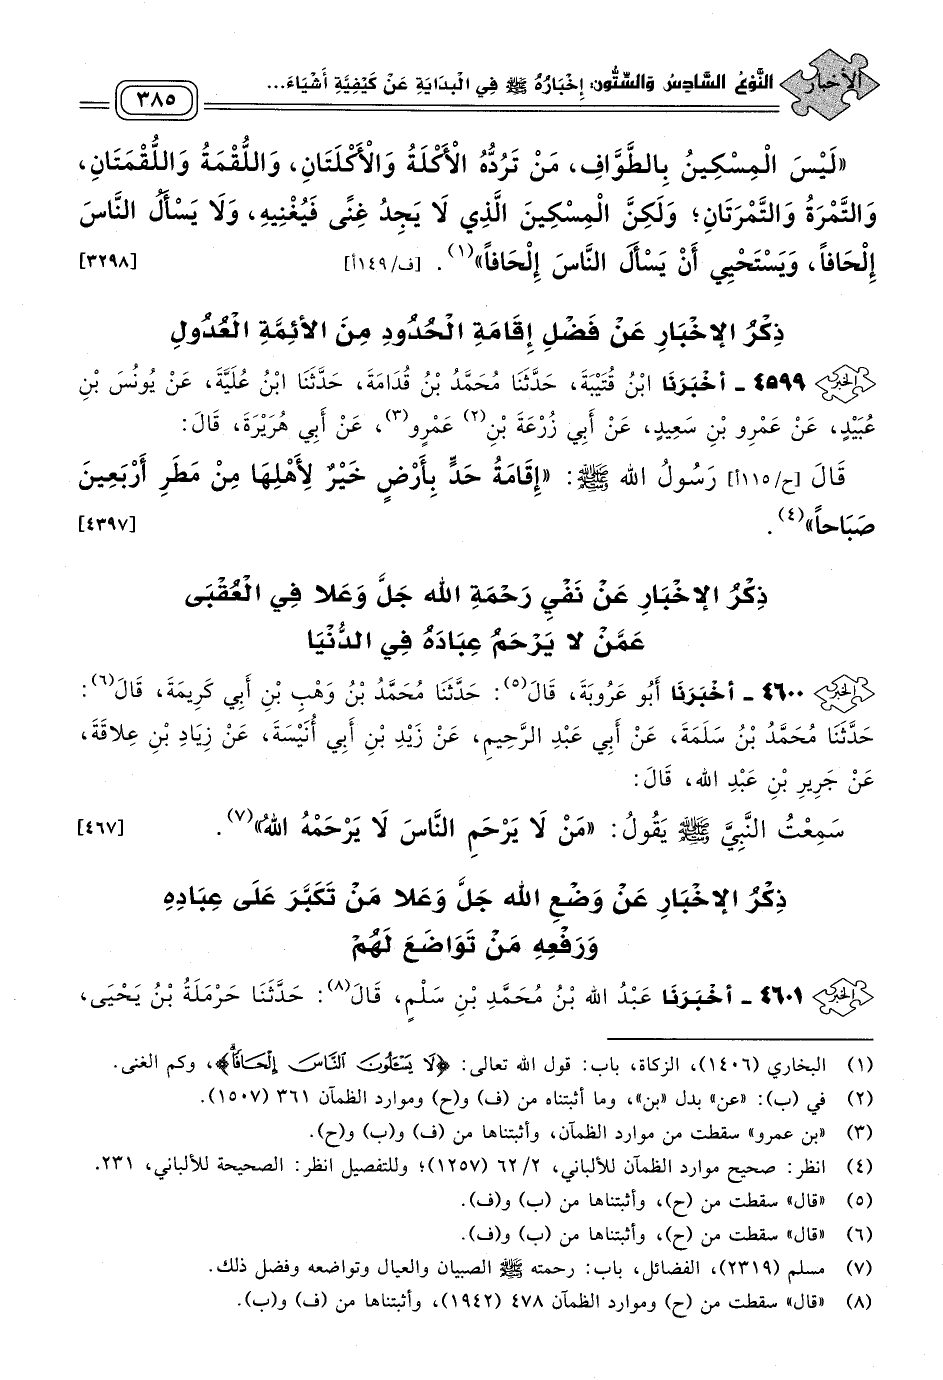 الأخبار
النَّوْعُ السَّادِسُ وَالسِّتُّون: إِخْبَارُهُ ﷺ فِي الْبِدَايَةِ عَنْ كَيْفِيَّةِ أَشْيَاءَ...
٣٨٥
«لَيْسَ الْمِسْكِينُ بِالطَّوَّافِ، مَنْ تَرُدُّهُ الْأَكْلَةُ وَالْأَكْلَتَانِ، وَاللُّقْمَةُ وَاللُّقْمَتَانِ،
وَالتَّمْرَةُ وَالتَّمْرَتَانِ؛ وَلَكِنَّ الْمِسْكِينَ الَّذِي لَا يَجِدُ غِنًى فَيُغْنِيهِ، وَلَا يَسْأَلُ النَّاسَ
إِلْحَافاً، وَيَسْتَحْيِي أَنْ يَسْأَلَ النَّاسَ إِلْحَافاً»(١). [ف/١٤٩أ] [٣٢٩٨]
ذِكْرُ الإخْبَارِ عَنْ فَضْلِ إِقَامَةِ الْحُدُودِ مِنَ الأَئِمَّةِ الْعُدُولِ
الخبر ٤٥٩٩ - أخْبَرَنَا ابْنُ قُتَيْبَةَ، حَدَّثَنَا مُحَمَّدُ بْنُ قُدَامَةَ، حَدَّثَنَا ابْنُ عُلَيَّةَ، عَنْ يُونُسَ بْنِ
عُبَيْدٍ، عَنْ عَمْرِو بْنِ سَعِيدٍ، عَنْ أَبِي زُرْعَةَ بْنِ(٢) عَمْرٍو(٣)، عَنْ أَبِي هُرَيْرَةَ، قَالَ:
قَالَ [ح/١١٥أ] رَسُولُ الله ﷺ: «إِقَامَةُ حَدٍّ بِأَرْضٍ خَيْرٌ لِأَهْلِهَا مِنْ مَطَرِ أَرْبَعِينَ
صَبَاحاً»(٤). [٤٣٩٧]
ذِكْرُ الإخْبَارِ عَنْ نَفْيِ رَحْمَةِ الله جَلَّ وَعَلا فِي الْعُقْبَى
عَمَّنْ لا يَرْحَمُ عِبَادَهُ فِي الدُّنْيَا
الخبر ٤٦٠٠ - أخْبَرَنَا أَبُو عَرُوبَةَ، قَالَ(٥): حَدَّثَنَا مُحَمَّدُ بْنُ وَهْبِ بْنِ أَبِي كَرِيمَةَ، قَالَ(٦):
حَدَّثَنَا مُحَمَّدُ بْنُ سَلَمَةَ، عَنْ أَبِي عَبْدِ الرَّحِيمِ، عَنْ زَيْدِ بْنِ أَبِي أُنَيْسَةَ، عَنْ زِيَادِ بْنِ عِلاقَةَ،
عَنْ جَرِيرِ بْنِ عَبْدِ الله، قَالَ:
سَمِعْتُ النَّبِيَّ ﷺ يَقُولُ: «مَنْ لَا يَرْحَمِ النَّاسَ لَا يَرْحَمْهُ اللهُ»(٧). [٤٦٧]
ذِكْرُ الإخْبَارِ عَنْ وَضْعِ الله جَلَّ وَعَلا مَنْ تَكَبَّرَ عَلَى عِبَادِهِ
وَرَفْعِهِ مَنْ تَوَاضَعَ لَهُمْ
الخبر ٤٦٠١ - أخْبَرَنَا عَبْدُ الله بْنُ مُحَمَّدِ بْنِ سَلْمٍ، قَالَ(٨): حَدَّثَنَا حَرْمَلَةُ بْنُ يَحْيَى،
(١) البخاري (١٤٠٦)، الزكاة، باب: قول الله تعالى: ﴿لَا يَسْـَٔلُونَ ٱلنَّاسَ إِلْحَافًا﴾، وكم الغنى.
(٢) في (ب): «عن» بدل «بن»، وما أثبتناه من (ف) و(ح) وموارد الظمآن ٣٦١ (١٥٠٧).
(٣) «بن عمرو» سقطت من موارد الظمآن، وأثبتناها من (ف) و(ب) و(ح).
(٤) انظر: صحيح موارد الظمآن للألباني، ٢/ ٦٢ (١٢٥٧)؛ وللتفصيل انظر: الصحيحة للألباني، ٢٣١.
(٥) «قال» سقطت من (ح)، وأثبتناها من (ب) و(ف).
(٦) «قال» سقطت من (ح)، وأثبتناها من (ب) و(ف).
(٧) مسلم (٢٣١٩)، الفضائل، باب: رحمته ﷺ الصبيان والعيال وتواضعه وفضل ذلك.
(٨) «قال» سقطت من (ح) وموارد الظمآن ٤٧٨ (١٩٤٢)، وأثبتناها من (ف) و(ب).